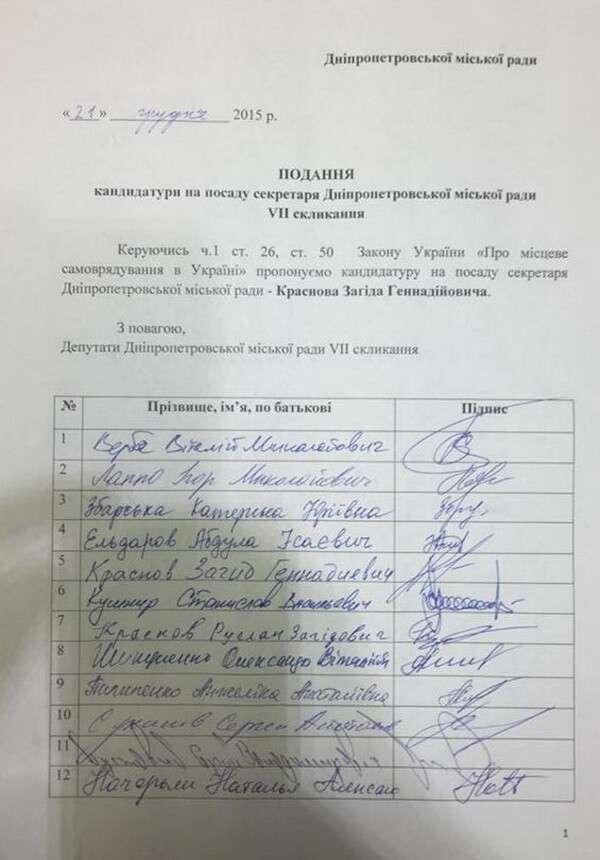 Дніпропетровської міської ради
«21» грудня 2015 р.
ПОДАННЯ
кандидатури на посаду секретаря Дніпропетровської міської ради
VII скликання
Керуючись ч.1 ст. 26, ст. 50 Закону України «Про місцеве
самоврядування в Україні» пропонуємо кандидатуру на посаду секретаря
Дніпропетровської міської ради - Краснова Загіда Геннадійовича.
З повагою,
Депутати Дніпропетровської міської ради VII скликання
№ Прізвище, ім’я, по батькові Підпис
1 Верба Віталій Миколайович
2 Лаппо Ігор Миколайович
3 Збарська Катерина Юріївна
4 Ельдаров Абдула Ісаєвич
5 Краснов Загид Геннадиевич
6 Кушнир Станислав
7 Краснов Руслан Загідович
8 Олександр Віталій
9 Пилипенко Анжеліка Анатоліївна
10 Суханов Сергей
11
12 Наталья
1